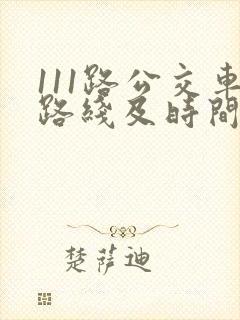 111路公交車
路綫及時間
楚萨迪